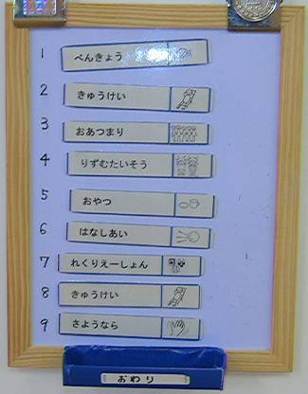 1 べんきょう
2 きゅうけい
3 おあつまり
4 りずむたいそう
5 おやつ
6 はなしあい
7 れくりえーしょん
8 きゅうけい
9 さようなら
おわり